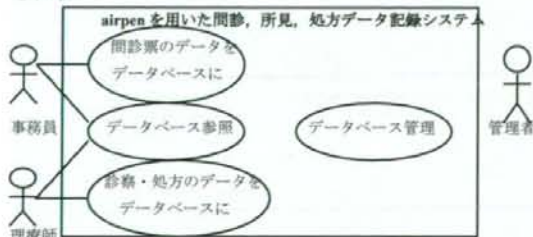 airpenを用いた問診，所見，処方データ記録システム
問診票のデータを
データベースに
事務員
データベース参照
データベース管理
管理者
診察・処方のデータを
データベースに
理療師